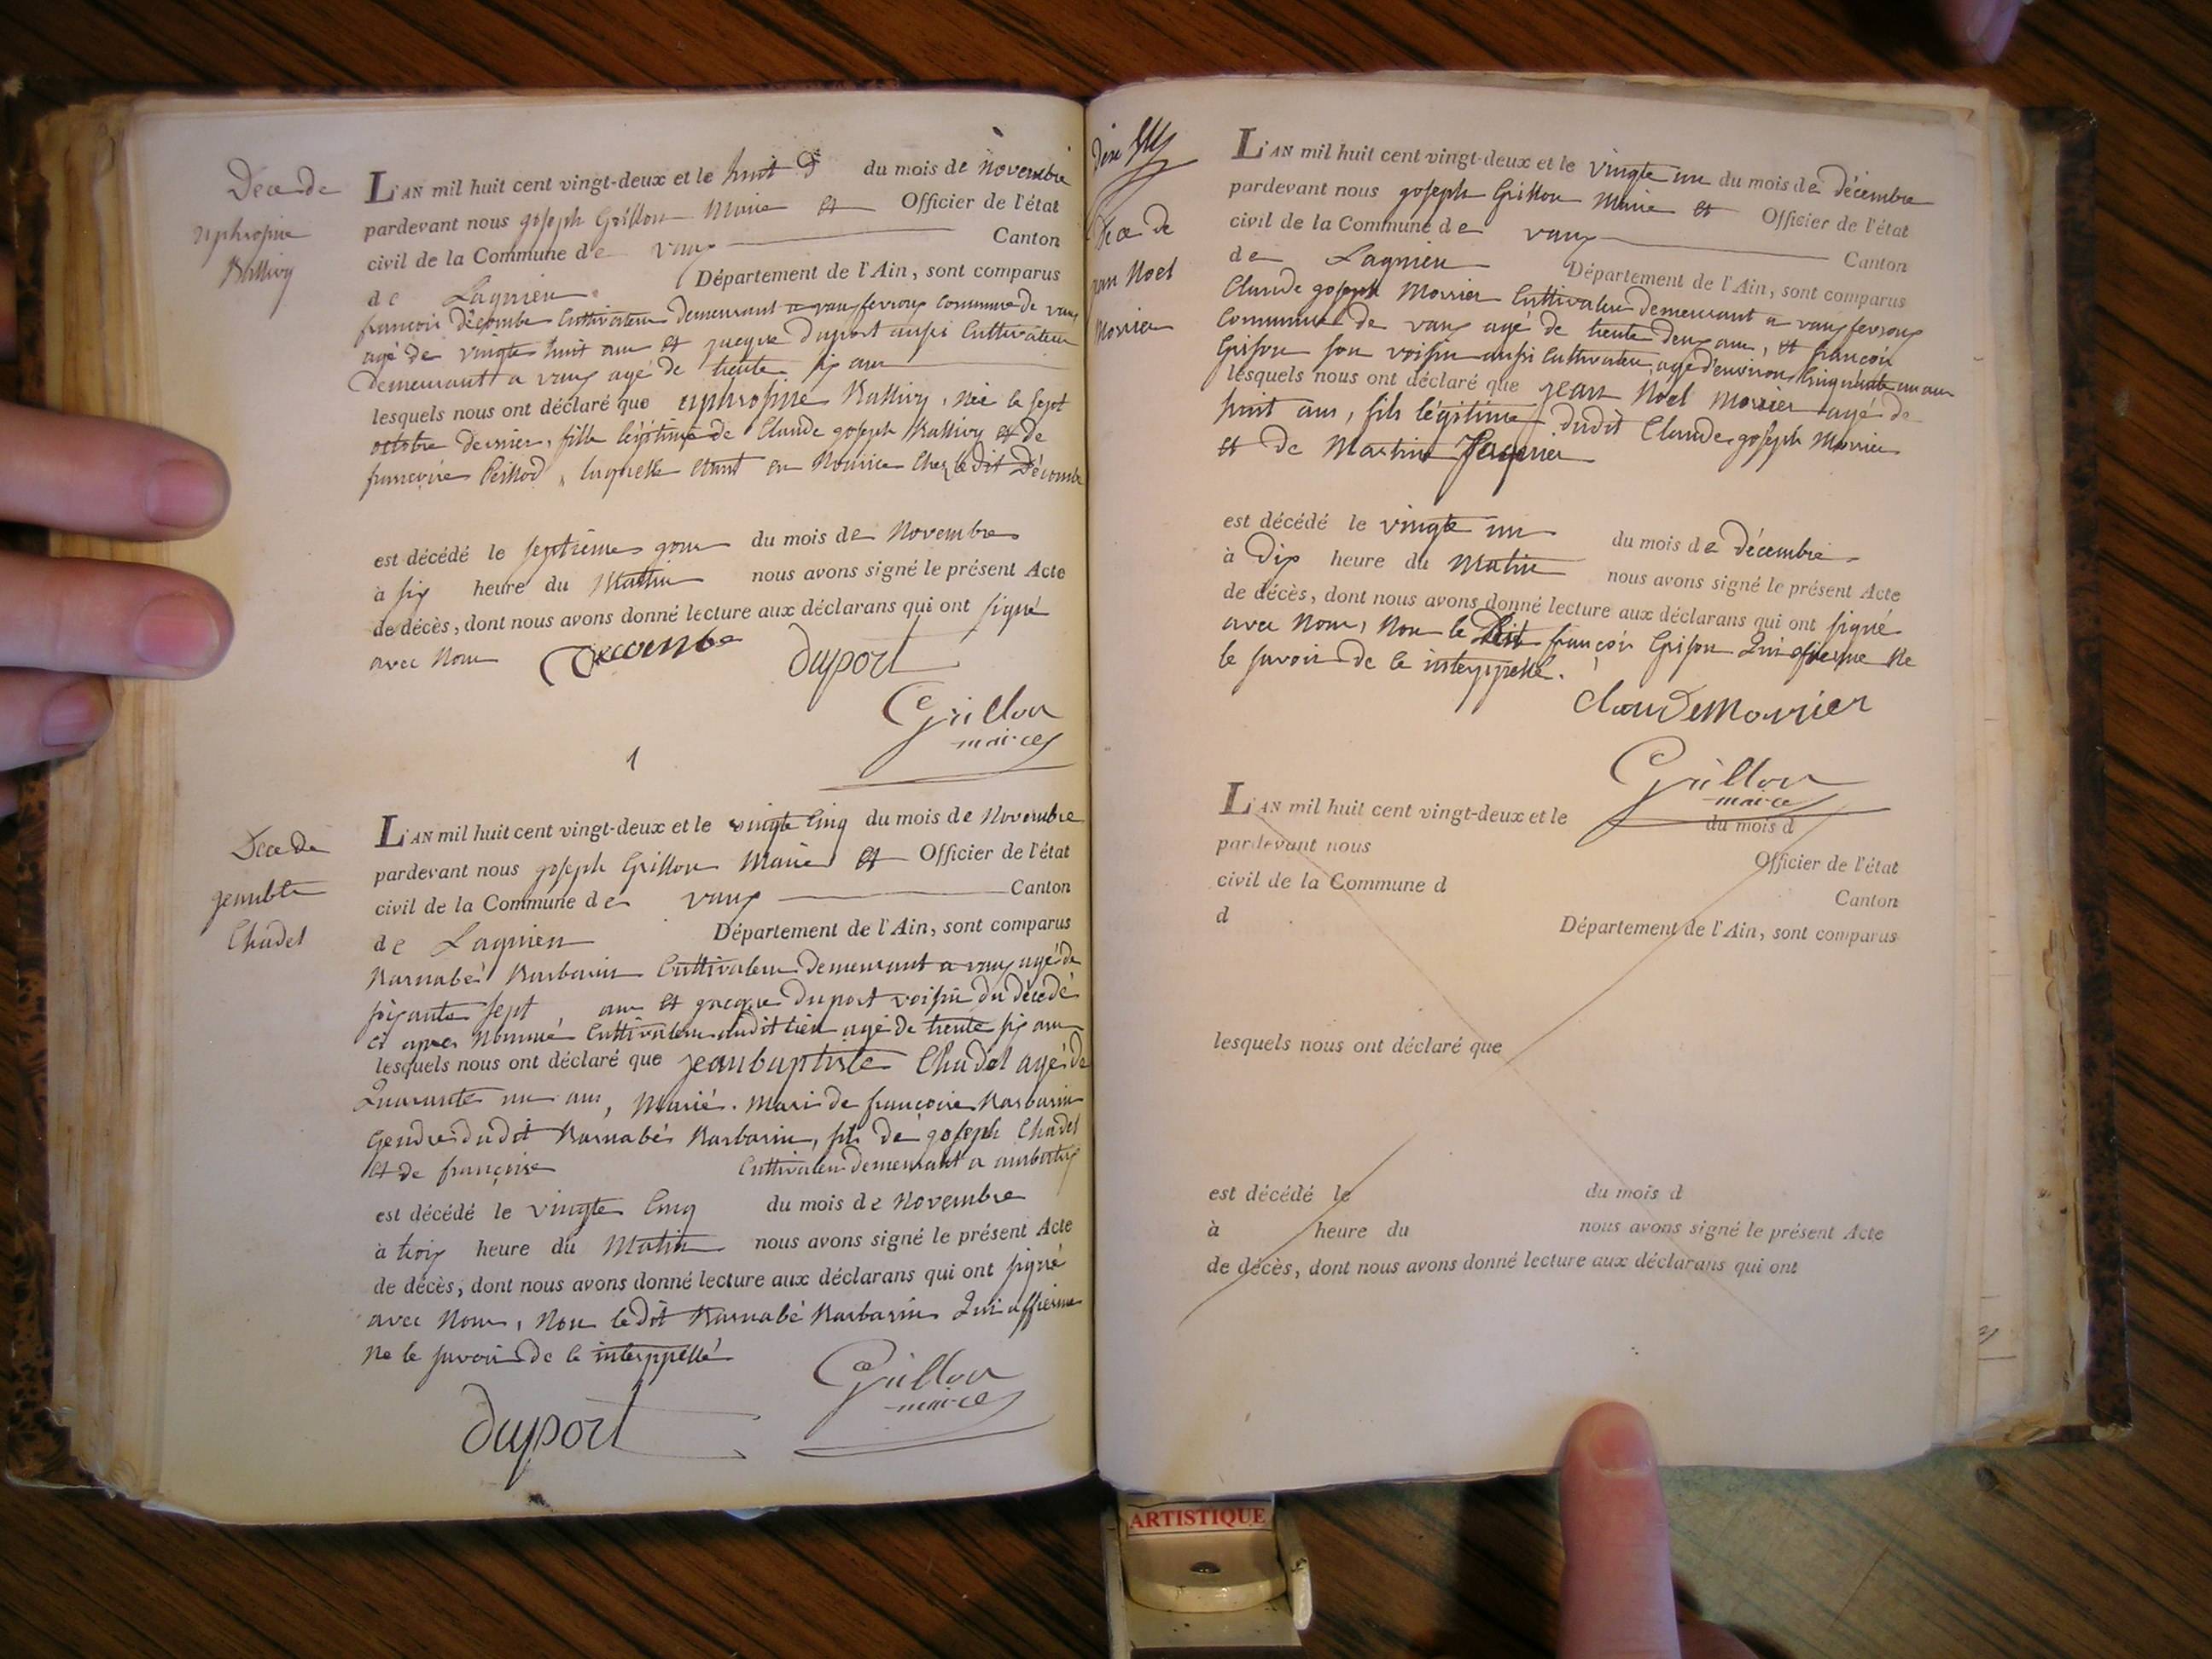 Dece de
uphrosine
L'AN mil huit cent vingt-deux et le huit du mois de Novembre
pardevant nous joseph Grillon Maire et Officier de l'état
civil de la Commune de vaux Canton
de Lagnieu Département de l'Ain, sont comparus
francois Décombe Cultivateur demeurant a vauxfevroux Commune de vaux
agé de vingte huit ans et jacque duport aussi Cultivateur
demeurant a vaux agé de trente six ans
lesquels nous ont déclaré que uphrosine née le sept
octobre dernier, fille légitime de Claude joseph et de
francoise laquelle etant en Nourice chez le dit Décombe
est décédé le septième jour du mois de Novembre
à six heure du Matin nous avons signé le présent Acte
de décès, dont nous avons donné lecture aux déclarans qui ont signé
avec Nous Decombe duport
Grillon
maire
Dece de
jeanbte
Chadel
L'AN mil huit cent vingt-deux et le vingte Cinq du mois de Novembre
pardevant nous joseph Grillon Maire et Officier de l'état
civil de la Commune de vaux Canton
de Lagnieu Département de l'Ain, sont comparus
Barnabé Barbarin Cultivateur demeurant a vaux agé de
soixante sept ans et jacque duport voisin du décedé
ci apres Nommé Cultivateur audit lieu agé de trente six ans
lesquels nous ont déclaré que jean baptiste Chadel agé de
Quarante un ans, Marié. Mari de francoise Barbarin
Gendre du dit Barnabé Barbarin, fils de joseph Chadel
et de françoise Cultivateur demeurant a
est décédé le vingte Cinq du mois de Novembre
à trois heure du Matin nous avons signé le présent Acte
de décès, dont nous avons donné lecture aux déclarans qui ont signé
avec Nous, Non le dit Barnabé Barbarin Qui affierme
Ne le savoir de ce interppellé
duport Grillon
maire
Dece de
jean Noel
Morrier
L'AN mil huit cent vingt-deux et le vingte un du mois de décembre
pardevant nous joseph Grillon Maire et Officier de l'état
civil de la Commune de vaux Canton
de Lagnieu Département de l'Ain, sont comparus
Claude joseph Morrier Cultivateur demeurant a vauxfevroux
Commune de vaux agé de trente deux ans, et francois
Grison son voisin aussi Cultivateur, agé d'environ Cinquante un ans
lesquels nous ont déclaré que jean Noel Morrier agé de
huit ans, fils légitime dudit Claude joseph Morrier
et de Martine
est décédé le vingte un du mois de décembre
à Dix heure du Matin nous avons signé le présent Acte
de décès, dont nous avons donné lecture aux déclarans qui ont signé
avec Nous, Non le Dit françois Grison Qui afierme Ne
le savoir de ce interppellé.
Claude Morrier
Grillon
maire
L'AN mil huit cent vingt-deux et le du mois d
pardevant nous Officier de l'état
civil de la Commune d Canton
d Département de l'Ain, sont comparus
lesquels nous ont déclaré que
est décédé le du mois d
à heure du nous avons signé le présent Acte
de décès, dont nous avons donné lecture aux déclarans qui ont
ARTISTIQUE